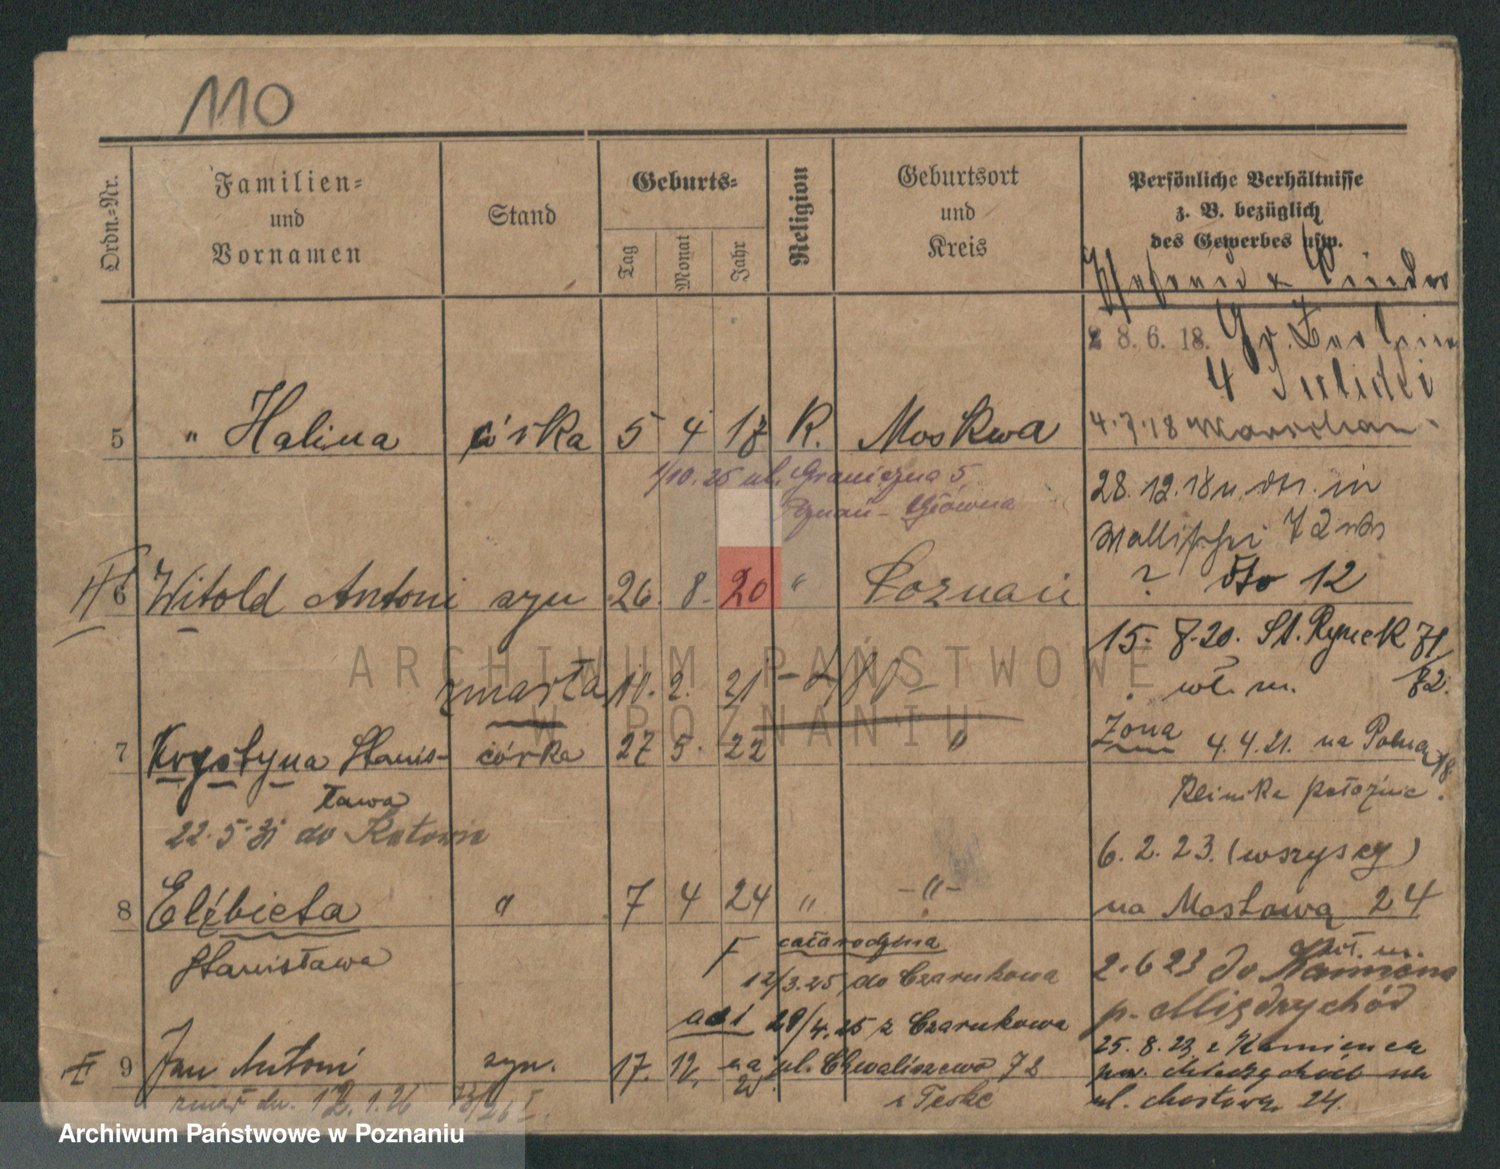 110
Ordn.-Nr.
Familien-
und
Vornamen
Stand
Geburts-
Tag
Monat
Jahr
Religion
Geburtsort
und
Kreis
Persönliche Verhältnisse
z. B. bezüglich
des Gewerbes usw.
28.6.18. Gr. Berliner
4
5 " Halina córka 5 4 18 K. Moskwa
4.7.18
1/10.25 ul. Graniczna 5
Poznań - Główna
28.12.18 in
Wallischei 72
? dto 12
II 6 Witold Antoni syn 26. 8. 20 " Poznań
15. 8.20. St. Rynek 71/82.
wł. m.
zmarła 10. 2. 21
7 Krystyna Stanis- córka 27 5. 22 "
ława
Żona 4.4.21. na Polną 18
Klinika położnic.
22.5.31 do Katowic
6.2.23. (wszyscy)
na Mostową 24
8 Elżbieta " 7 4 24 " -"-
Stanisława
cała rodzina
12/3.25 do Czarnkowa
2.6 23 do Kamionna
p. Międzychód
ad 1 29/4.25 z Czarnkowa
25.8.23 z Kamionca
pow. Międzychód na
ul. Mostową 24.
II 9 Jan Antoni syn. 17. 12.
na ul. Chwaliszewo 72
i Teske
zmarł dn. 12.1.26
ARCHIWUM PAŃSTWOWE
W POZNANIU
Archiwum Państwowe w Poznaniu